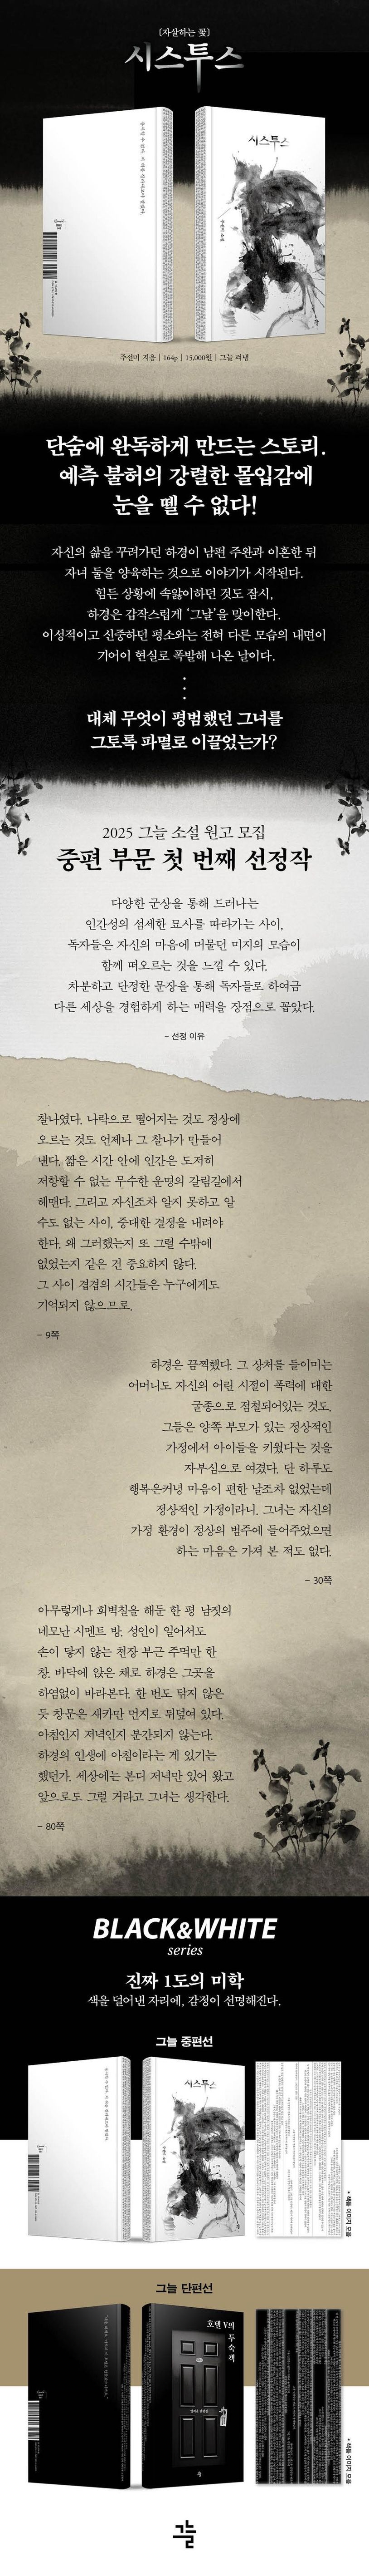 (자살하는 꽃)
시스투스
시스투스
주선미 지음 | 164p | 15,000원 | 그늘 펴냄
단숨에 완독하게 만드는 스토리.
예측 불허의 강렬한 몰입감에
눈을 뗄 수 없다!
자신의 삶을 꾸려가던 하경이 남편 주완과 이혼한 뒤
자녀 둘을 양육하는 것으로 이야기가 시작된다.
힘든 상황에 속앓이하던 것도 잠시,
하경은 갑작스럽게 ‘그날’을 맞이한다.
이성적이고 신중하던 평소와는 전혀 다른 모습의 내면이
기어이 현실로 폭발해 나온 날이다.
대체 무엇이 평범했던 그녀를
그토록 파멸로 이끌었는가?
2025 그늘 소설 원고 모집
중편 부문 첫 번째 선정작
다양한 군상을 통해 드러나는
인간성의 섬세한 묘사를 따라가는 사이,
독자들은 자신의 마음에 머물던 미지의 모습이
함께 떠오르는 것을 느낄 수 있다.
차분하고 단정한 문장을 통해 독자들로 하여금
다른 세상을 경험하게 하는 매력을 장점으로 꼽았다.
- 선정 이유
찰나였다. 나락으로 떨어지는 것도 정상에
오르는 것도 언제나 그 찰나가 만들어
낸다. 짧은 시간 안에 인간은 도저히
저항할 수 없는 무수한 운명의 갈림길에서
헤맨다. 그리고 자신조차 알지 못하고 알
수도 없는 사이, 중대한 결정을 내려야
한다. 왜 그러했는지 또 그럴 수밖에
없었는지 같은 건 중요하지 않다.
그 사이 겹겹의 시간들은 누구에게도
기억되지 않으므로.
- 9쪽
하경은 끔찍했다. 그 상처를 들이미는
어머니도 자신의 어린 시절이 폭력에 대한
굴종으로 점철되어있는 것도.
그들은 양쪽 부모가 있는 정상적인
가정에서 아이들을 키웠다는 것을
자부심으로 여겼다. 단 하루도
행복은커녕 마음이 편한 날조차 없었는데
정상적인 가정이라니. 그녀는 자신의
가정 환경이 정상의 범주에 들어주었으면
하는 마음은 가져 본 적도 없다.
- 30쪽
아무렇게나 회벽칠을 해둔 한 평 남짓의
네모난 시멘트 방. 성인이 일어서도
손이 닿지 않는 천장 부근 주먹만 한
창. 바닥에 앉은 채로 하경은 그곳을
하염없이 바라본다. 한 번도 닦지 않은
듯 창문은 새카만 먼지로 뒤덮여 있다.
아침인지 저녁인지 분간되지 않는다.
하경의 인생에 아침이라는 게 있기는
했던가. 세상에는 본디 저녁만 있어 왔고
앞으로도 그럴 거라고 그녀는 생각한다.
- 80쪽
BLACK&WHITE
series
진짜 1도의 미학
색을 덜어낸 자리에, 감정이 선명해진다.
그늘 중편선
시스투스
• 책등 이미지 모음
그늘 단편선
호텔 V의
투숙객
• 책등 이미지 모음
그늘